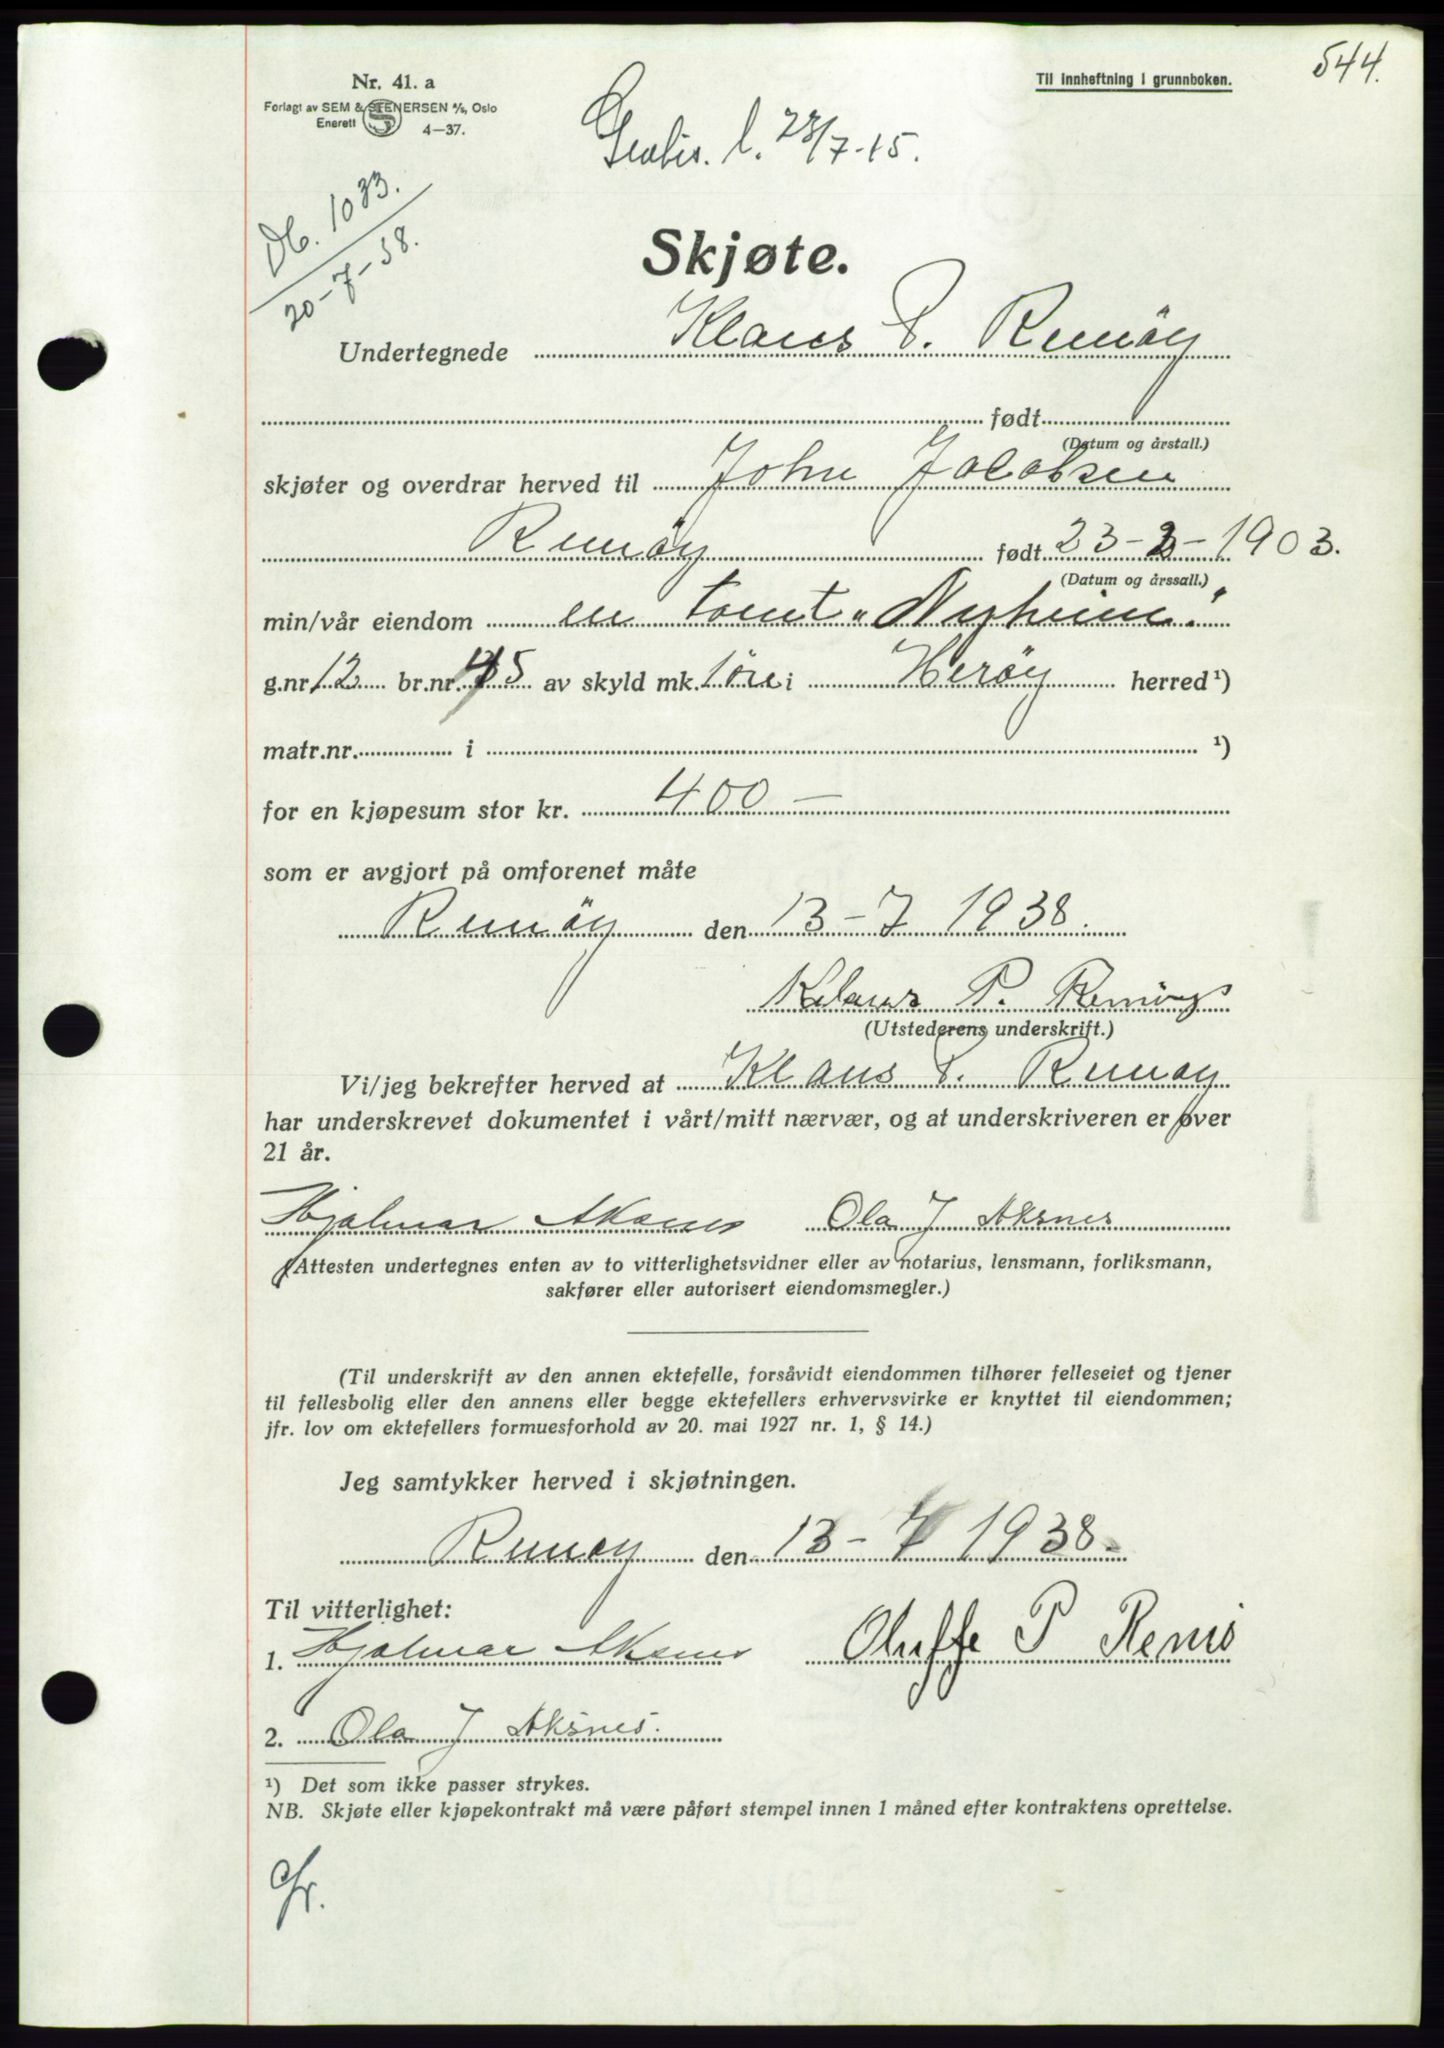 544.
Nr. 41. a
Til innheftning i grunnboken.
Forlagt av SEM & STENERSEN A/S, Oslo
Enerett 4—37.
l. 28/7-15.
Db. 1033.
20-7-38.
Skjøte.
Undertegnede Klaus P. Remöy
født
(Datum og årstall.)
skjøter og overdrar herved til John Jacobsen
Remöy født 23-2-1903.
(Datum og årssall.)
min/vår eiendom en tomt „Nyheim."
g.nr. 12 br.nr. 45 av skyld mk. 1 öre i Heröy herred ¹)
matr.nr. i ¹)
for en kjøpesum stor kr. 400 —
som er avgjort på omforenet måte
Remöy den 13-7 1938.
Klaus P. Remöy
(Utstederens underskrift.)
Vi/jeg bekrefter herved at Klaus P. Remöy
har underskrevet dokumentet i vårt/mitt nærvær, og at underskriveren er over
21 år.
Hjalmar Aksnes Ola J Aksnes
(Attesten undertegnes enten av to vitterlighetsvidner eller av notarius, lensmann, forliksmann,
sakfører eller autorisert eiendomsmegler.)
(Til underskrift av den annen ektefelle, forsåvidt eiendommen tilhører felleseiet og tjener
til fellesbolig eller den annens eller begge ektefellers erhvervsvirke er knyttet til eiendommen;
jfr. lov om ektefellers formuesforhold av 20. mai 1927 nr. 1, § 14.)
Jeg samtykker herved i skjøtningen.
Remoy den 13-7 1938.
Til vitterlighet:
1. Hjalmar Aksnes Oluffe P Remö
2. Ola J Aksnes.
¹) Det som ikke passer strykes.
NB. Skjøte eller kjøpekontrakt må være påført stempel innen 1 måned efter kontraktens oprettelse.